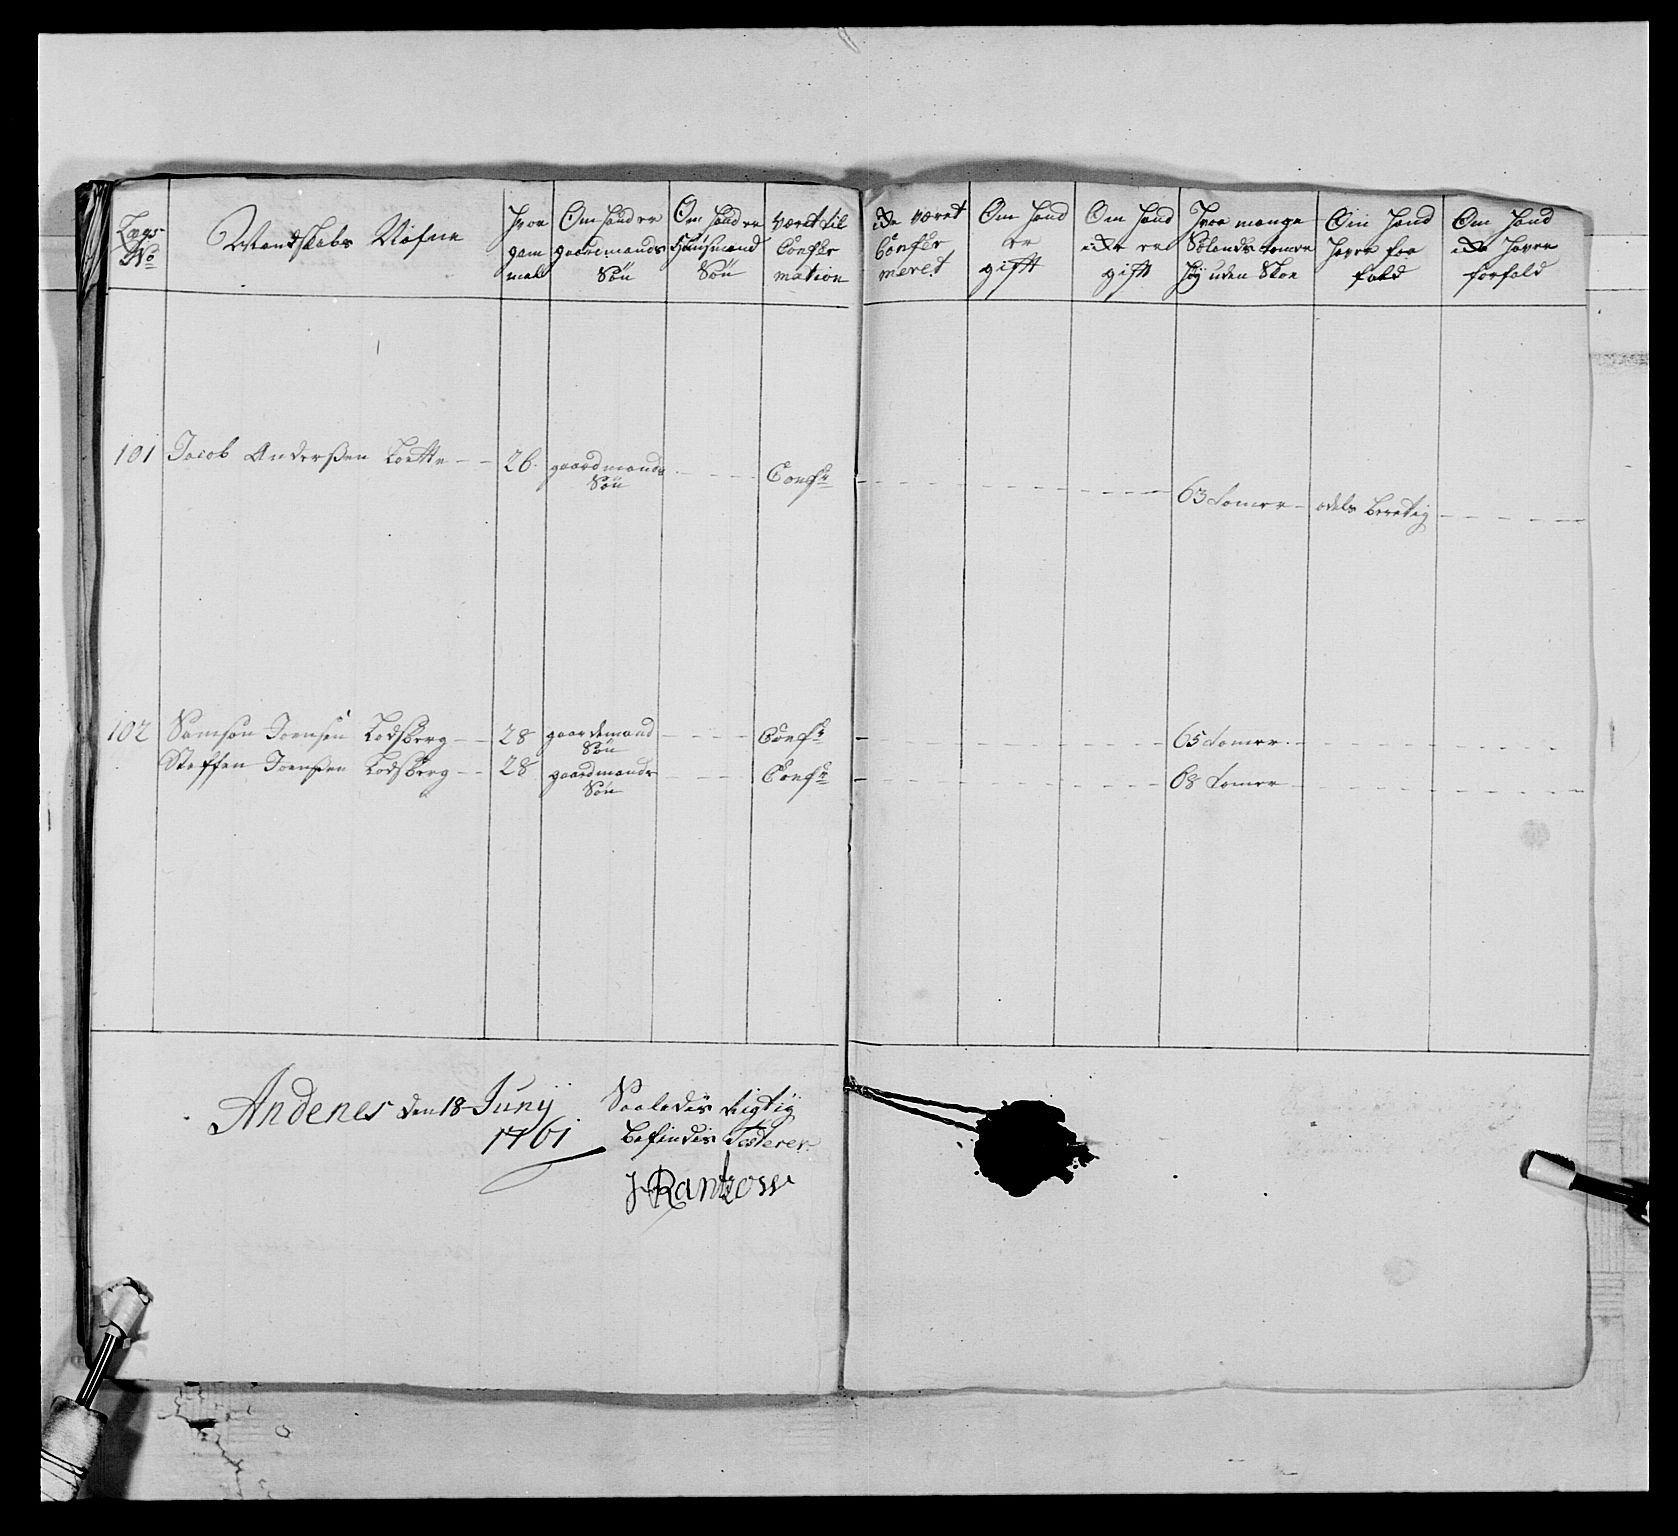 Lægs No
Mandskabs Nafne
Hvor gam mel
Om hand er gaardmands Søn
Om hand er Huusmand Søn
Været til Confir mation
icke været Confir meret
Om hand er gift
Om hand icke er gift
Hvor mange Sælands tomer høy uden Skoe
Om hand haver for fald
Om hand icke haver forfald
101 Jacob Anderßen 26 gaardmands Søn Confr 63 tomer odels beretig
102 Samson Joensen Lodsberg 28 gaardemand Søn Confr 65 tomer
Steffen Joenßen Lodsberg 28 gaardmands Søn Confr 68 tomer
Andenes den 18 Junij 1761
Saaledis rigtig
befindis Testerer
JRantzow